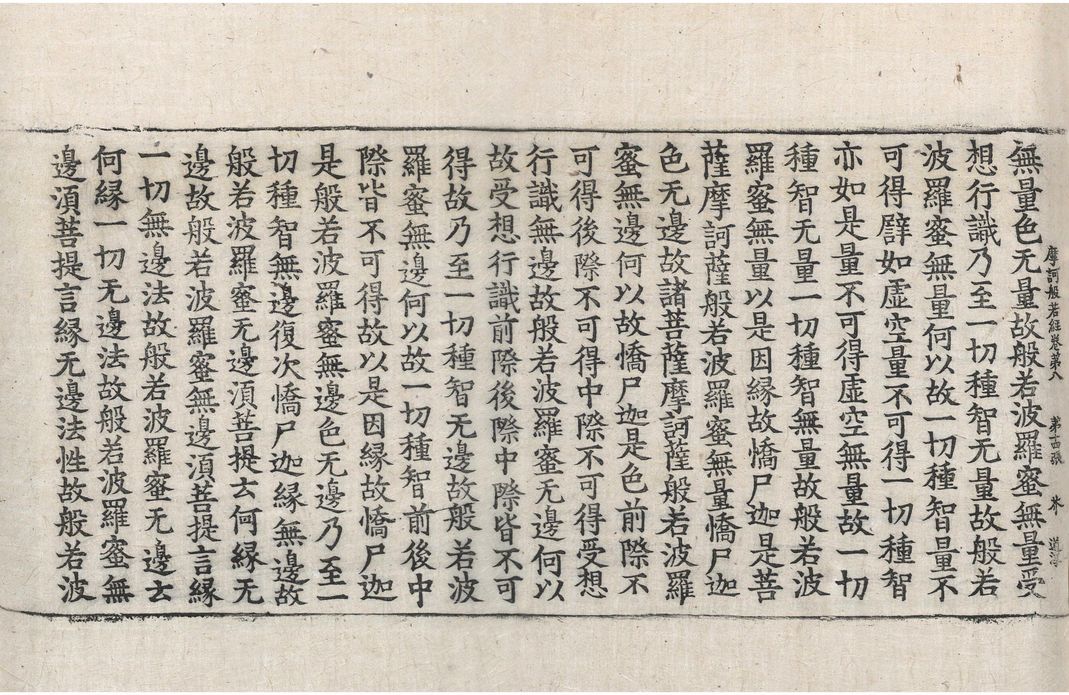 摩訶般若經卷第八 第十四張 芥 道
無量色无量故般若波羅蜜無量受
想行識乃至一切種智无量故般若
波羅蜜無量何以故一切種智量不
可得譬如虛空量不可得一切種智
亦如是量不可得虛空無量故一切
種智无量一切種智無量故般若波
羅蜜無量以是因縁故憍尸迦是菩
薩摩訶薩般若波羅蜜無量憍尸迦
色无邊故諸菩薩摩訶薩般若波羅
蜜無邊何以故憍尸迦是色前際不
可得後際不可得中際不可得受想
行識無邊故般若波羅蜜无邊何以
故受想行識前際後際中際皆不可
得故乃至一切種智无邊故般若波
羅蜜無邊何以故一切種智前後中
際皆不可得故以是因縁故憍尸迦
是般若波羅蜜無邊色无邊乃至一
切種智無邊復次憍尸迦縁無邊故
般若波羅蜜无邊湏菩提云何縁无
邊故般若波羅蜜無邊湏菩提言縁
一切無邊法故般若波羅蜜无邊云
何縁一切无邊法故般若波羅蜜無
邊湏菩提言縁无邊法性故般若波